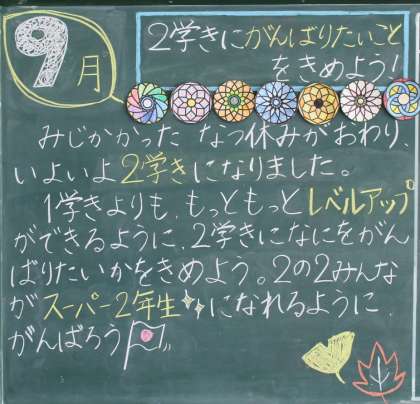 9月
2学きにがんばりたいこと
をきめよう!
みじかかった なつ休みがおわり、
いよいよ2学きになりました。
1学きよりも、もっともっとレベルアップ
ができるように、2学きになにをがん
ばりたいかをきめよう。2の2みんな
がスーパー2年生になれるように、
がんばろう